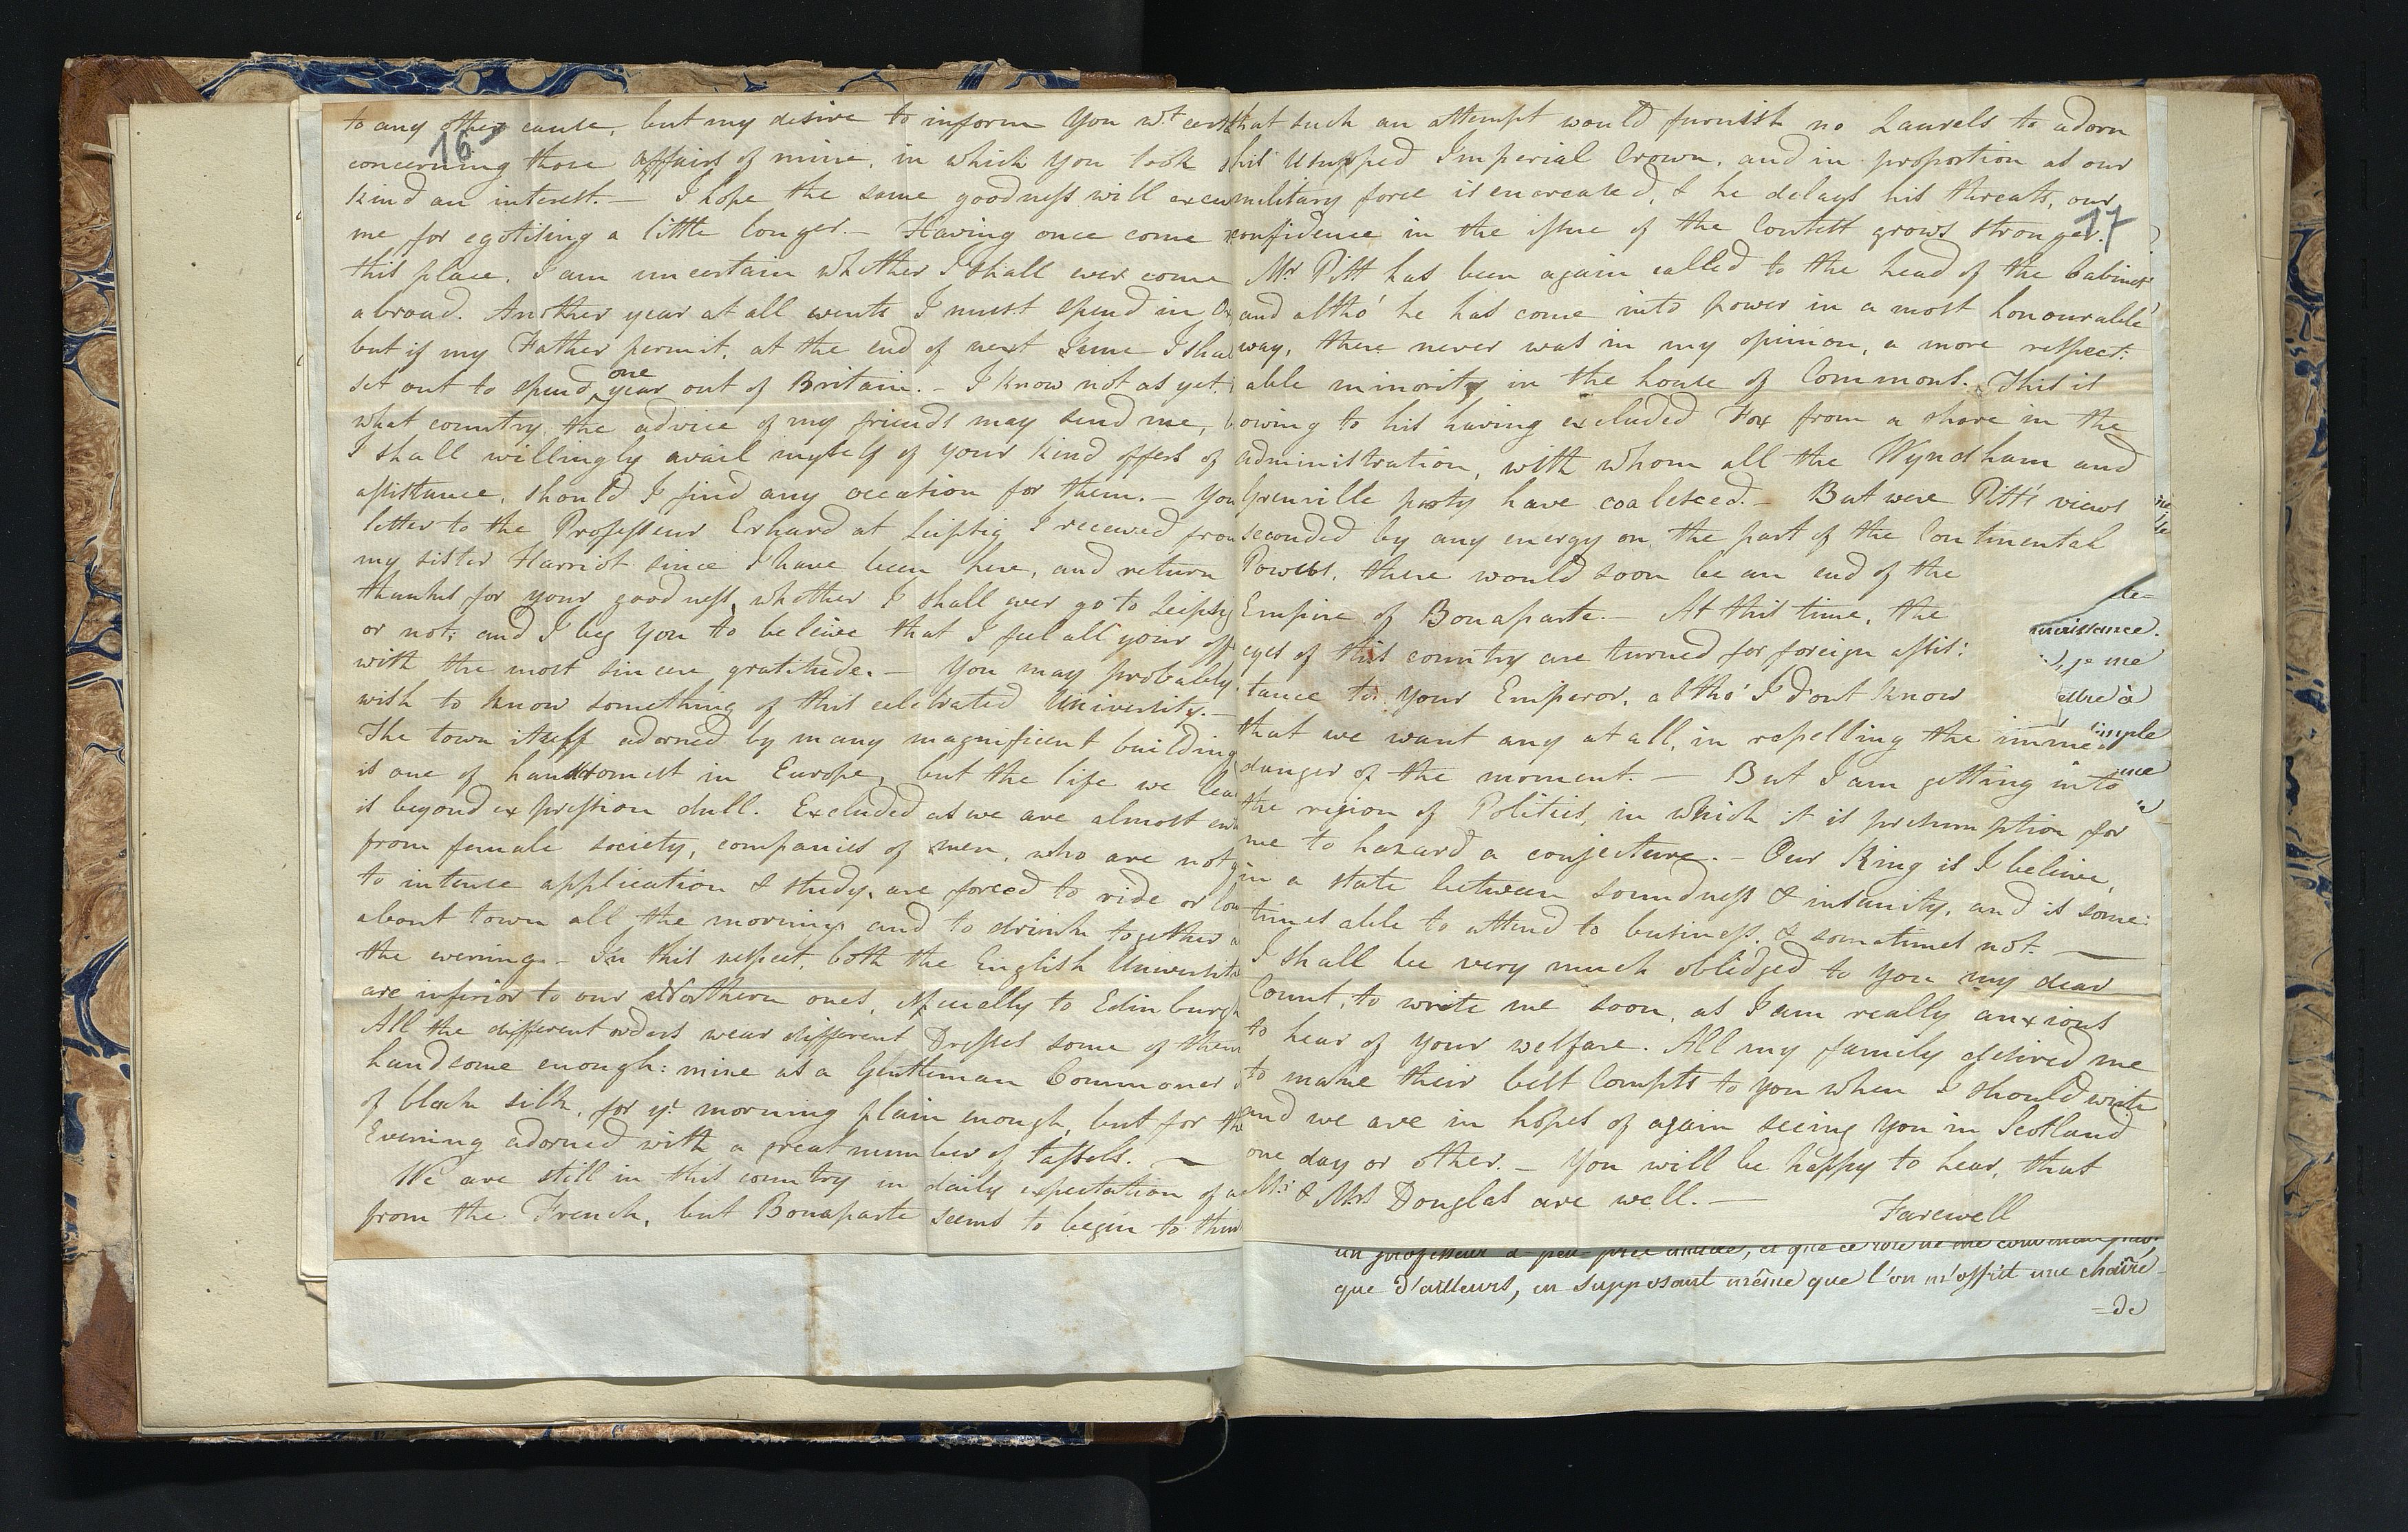 to any other cause, but my desire to inform You wt. cert
16
concerning those affairs of mine, in which You took s
kind an interest. – I hope the same goodness will excu
me for egotising a little longer. – Having once come
this place, I am uncertain whether I shall ever come
abroad. Another year at all events I must spend in Ox
but if my Father permit, at the end of next June I sha
set out to spend one year out of Britain. – I know not as yet
what country the advice of my friends may send me, b
I shall willingly avail myself of your kind offers of
assistance, should I find any occasion for them. – You
letter to the Professeur Erhard at Leipsig I received from
my sister Harriot since I have been here, and return
thanks for your goodness, whether I shall ever go to Leipsig
or not; and I beg you to beleive that I feel all your off
with the most sincere gratitude. – You may probably
wish to know something of this celebrated University. –
The town itself adorned by many magnificent building
is one of handsomest in Europe, but the life we lea
is beyond expression dull. Excluded as we are almost ent
from female society, companies of men, who are not g
to intense application & study, are forced to ride or lou
about town all the morning and to drink together
the evening. – In this respect, both the English Universiti
are inferior to our Northern ones, especially to Edinburgh
All the different orders wear different Dresses some of them
handsome enough: mine as a Gentleman Commoner
of black silk, for ye. morning plain enough, but for the
Evening adorned with a great number of tassels. –
We are still in this country in daily expectation of a
from the French, but Bonaparte seems to begin to thin
that such an attempt would furnish no Laurels to adorn
his Usurped Imperial Crown, and in proportion as our
military force is encreased, & he delays his threats, our
confidence in the issue of the Contest grows stronger.
17
Mr Pitt has been again called to the head of the Cabinet
and altho' he has come into power in a most honourable
way, there never was in my opinion, a more respect:
able minority in the house of Commons. This is
owing to his having excluded Fox from a share in the
administration, with whom all the Wyndham and
Grenville party have coalesced. – But were Pitt's views
seconded by any energy on the part of the Continental
Powers, there would soon be an end of the
Empire of Bonaparte. – At this time, the
eyes of this country are turned for foreign assis:
tance to your Emperor, altho' I dont know
that we want any at all, in repelling the immed
danger of the moment. – But I am getting into
the region of Politics, in which it is presumption for
me to hazard a conjecture. – Our King is I believe,
in a state between soundness & insanity, and is some:
times able to attend to business, & sometimes not. –
I shall be very much oblidged to you my dear
Count, to write me soon, as I am really anxious
to hear of your welfare. All my family desired me
to make their best Compts to you when I should write
and we are in hopes of again seeing You in Scotland
one day or other. – You will be happy to hear, that
Mr. & Mrs Douglas are well. –
Farewell
de-
, je me
ettre à
simple
que d'ailleurs, en supposant même que l'on m'offrît une chaire
=de